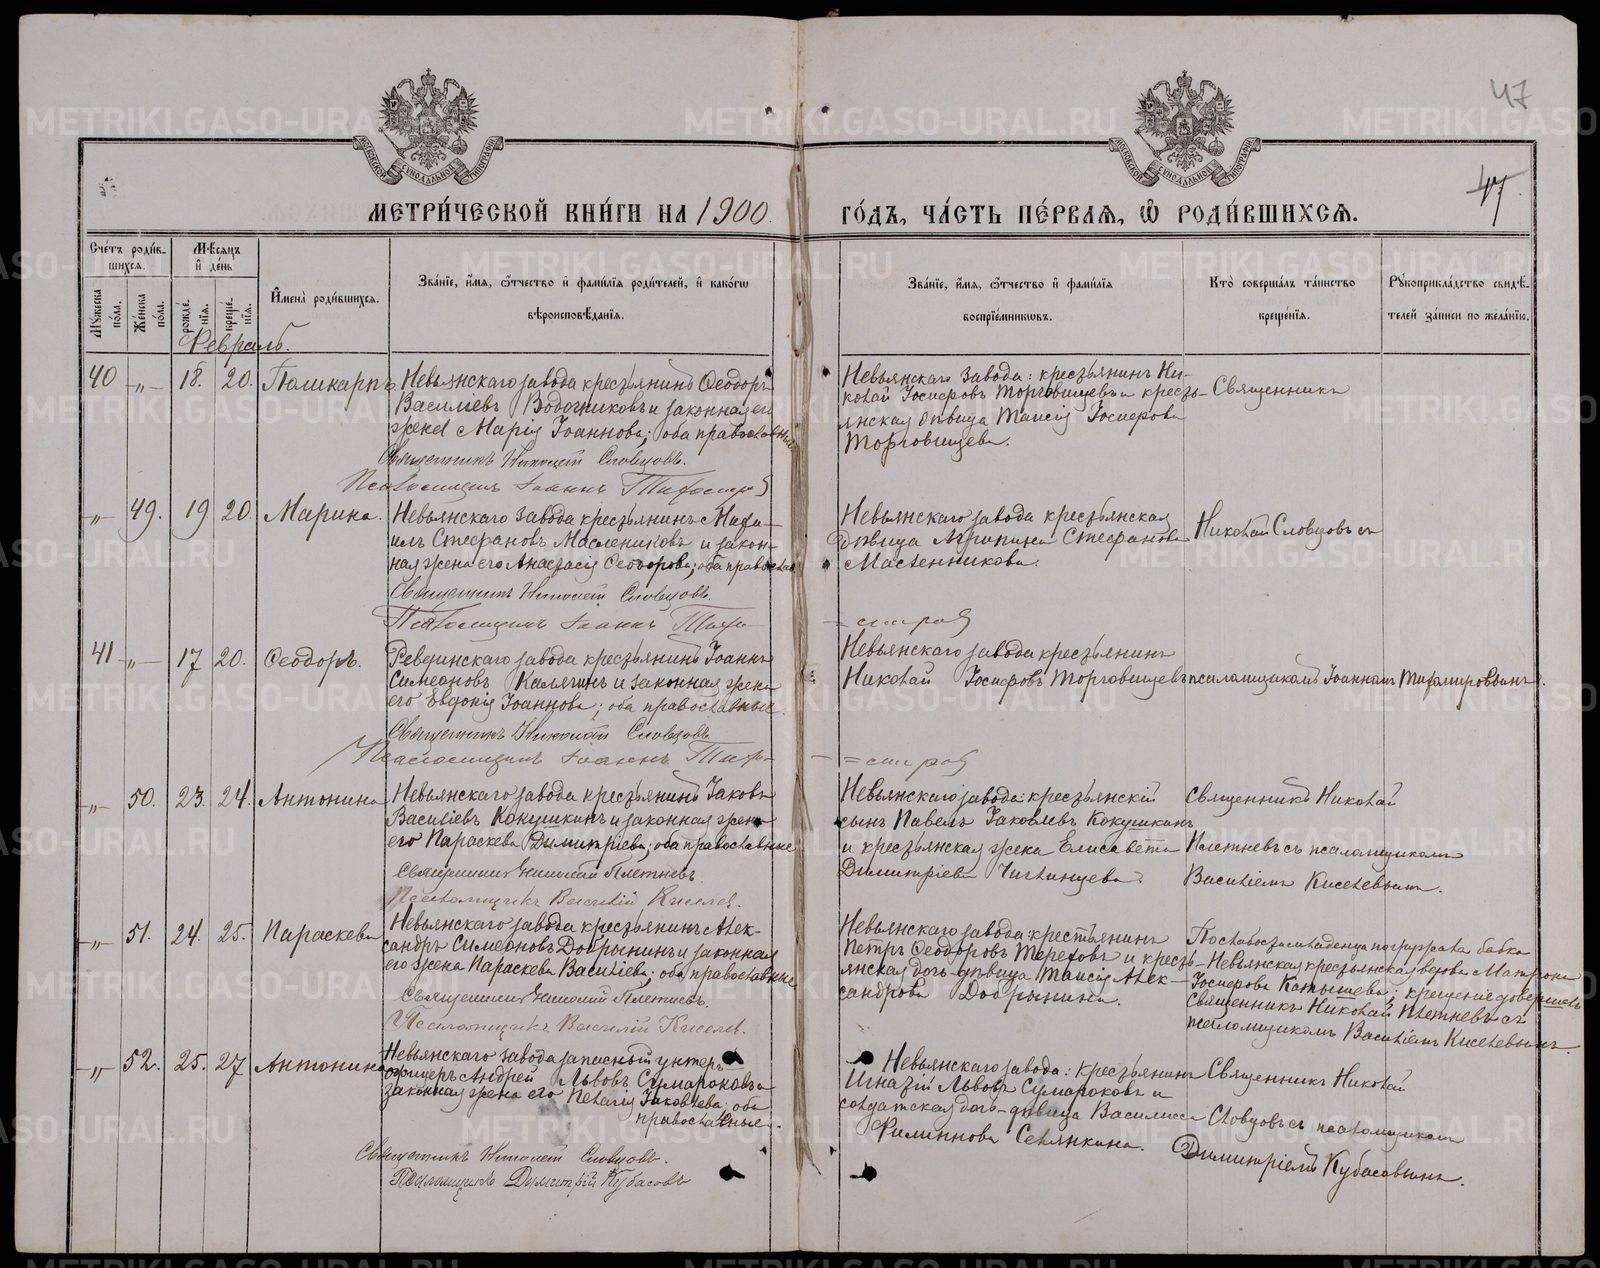 47
47
МЕТРИ́ЧЕСКОЙ КНИ́ГИ НА 1900 ГО́ДЪ, ЧА́СТЬ ПЕ́РВАЯ, Ѽ РОДИ́ВШИХСЯ.
Сче́тъ роди́в-
шихся.
Мѣ́сяцъ
и҆ день
Мꙋ́жеска по́ла.
Же́нска по́ла.
рожде́нїя.
креще́нїя.
И҆мена̀ роди́вшихся.
Зва́нїе, и҆́мя, ѻ҆́тчество и҆ фами́лїя роди́телей, и҆ како́гѡ
вѣроисповѣ́данїя.
Зва́нїе, и҆́мя, ѻ҆́тчество и҆ фами́лїя
воспрїе́мникѡвъ.
Кто̀ соверша́лъ та́инство
креще́нїя.
Рꙋкоприкла́дство свидѣ́-
телей за́писи по жела́нїю.
Февраль.
40 -„- 18. 20. Поликарпъ
Невьянскаго завода крестьянинъ Ѳеодоръ
Василіевъ Водочниковъ и законная его
жена Марія Іоаннова; оба православные
Священникъ Николай Словцовъ.
Псаломщикъ Іоаннъ Тифостровъ
Невьянскаго завода: крестьянинъ Ни-
колай Іосифовъ Торговищевъ и кресть-
янская дѣвица Таисія Іосифова
Торговищева.
Священникъ
-„- 49. 19 20. Марина.
Невьянскаго завода крестьянинъ Миха-
илъ Стефановъ Маслениковъ и закон-
ная жена его Анастасія Ѳеодорова; оба православ
Священникъ Николай Словцовъ.
Псаломщикъ Іоаннъ Тифо-
Невьянскаго завода крестьянская
дѣвица Агрипина Стефанова
Масленникова.
=стровъ
Николай Словцовъ съ
41 -„- 17 20. Ѳеодоръ.
Ревдинскаго завода крестьянинъ Іоаннъ
Симеоновъ Калягинъ и законная жена
его Евдокія Іоаннова; оба православные.
Священникъ Николай Словцовъ
Псаломщикъ Іоаннъ Тифо-
Невьянскаго завода крестьянинъ
Николай Іосифовъ Торговищевъ
=стровъ
псаломщикомъ Іоанномъ
-„- 50. 23. 24. Антонина
Невьянскаго завода крестьянинъ Іаковъ
Василіевъ Кокушкинъ и законная жена
его Параскева Димитріева; оба православные
Священникъ Николай Плетневъ
Псаломщикъ Василій Киселев.
Невьянскаго завода: крестьянскій
сынъ Павелъ Іаковлевъ Кокушкинъ
и крестьянская жена Елисавета
Димитріева
Священникъ Николай
Плетневъ съ псаломщикомъ
Василіемъ Киселевымъ.
-„- 51. 24. 25. Параскева
Невьянскаго завода крестьянинъ Алек-
сандръ Симеоновъ Добрынинъ и законная
его жена Параскева Василіева; оба православные
Священникъ Николай Плетневъ.
Псаломщикъ Василій Киселев.
Невьянскаго завода: крестьянинъ
Петръ Ѳеодоровъ Тереховъ и кресть-
янская дочь-дѣвица Таисія Алек-
сандрова Добрынина.
По слабости младенца погружала бабка
Невьянская крестьянская вдова Матрона
Іосифова Катышева; крещеніе довершилъ
Священникъ Николай Плетневъ съ
псаломщикомъ Василіемъ Киселевымъ.
-„- 52. 25. 27 Антонина
Невьянскаго завода запасный унтеръ-
офицеръ Андрей Львовъ Сумароковъ и
законная жена его Пелагія Іаковлева; оба
православные.
Священникъ Николай Словцовъ.
Псаломщикъ Димитрій Кубасовъ
Невьянскаго завода: крестьянинъ
Игнатій Львовъ Сумароковъ и
солдатская дочь-дѣвица Василисса
Филиппова Селянкина.
Священникъ Николай
Словцовъ съ псаломщикомъ
Димитріемъ Кубасовымъ.
METRIKI.GASO-URAL.RU